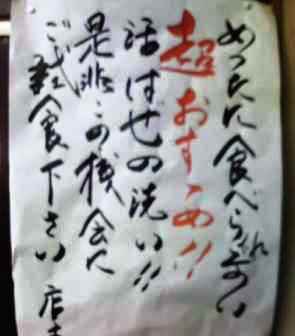 めったに食べられない
超おすすめ!!
活はぜの洗い!!
是非この機会に
ご試食下さい 店主